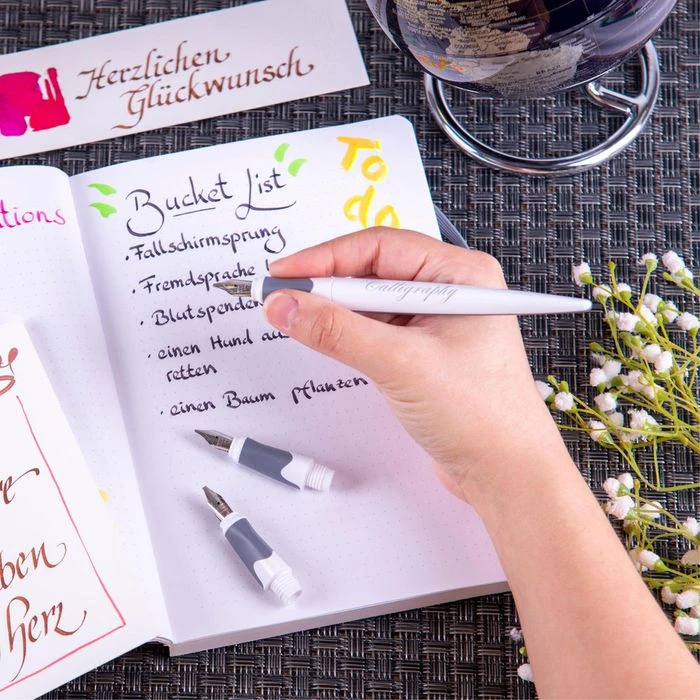 Herzlichen
Glückwunsch
To
do
Bucket List
• Fallschirmsprung
• Fremdsprache
• Blutspenden
• einen Hund
retten
• einen Baum pflanzen
Calligraphy
Herz